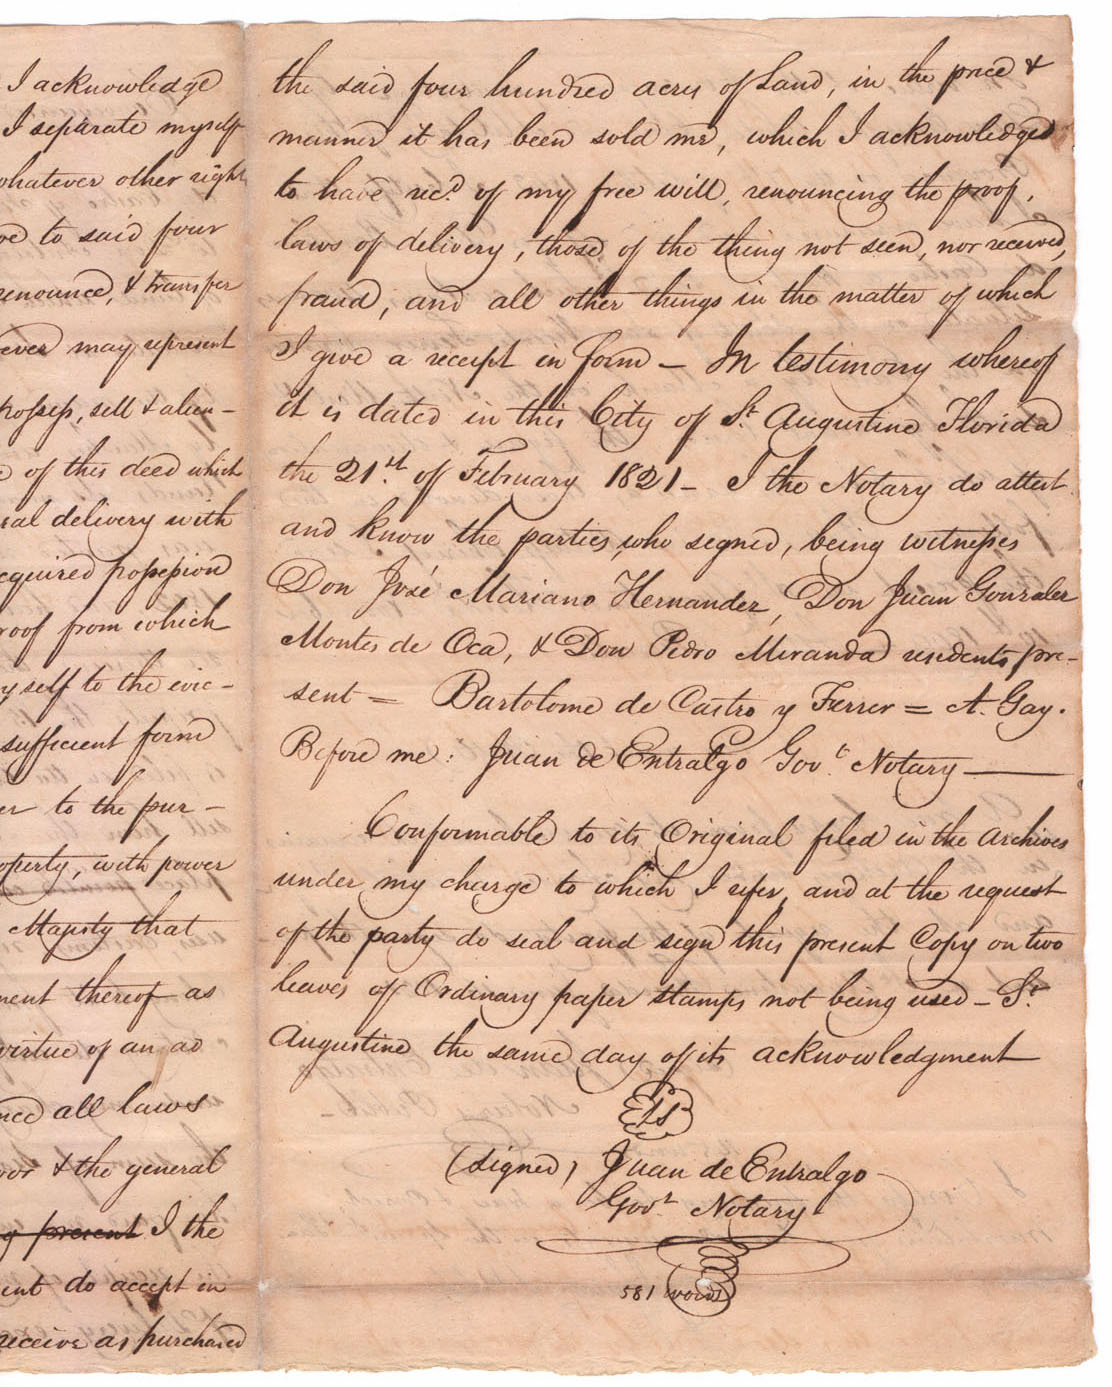 I acknowledge
I separate myself
whatever other right
to said four
renounce, & transfer
ever may represent
possess, sell & alien-
of this deed which
delivery with
acquired possession
proof from which
myself to the evic-
sufficient form
to the pur-
property, with power
Majesty that
thereof as
virtue of an ad
all laws
& the general
present I the
do accept in
receive as purchased
the said four hundred acres of Land, in the price &
manner it has been sold me, which I acknowledged
to have recd. of my free will, renouncing the proof,
laws of delivery, those of the thing not seen, nor received,
fraud, and all other things in the matter of which
I give a receipt in form — In testimony whereof
it is dated in this City of St. Augustine Florida
the 21st. of February 1821 — I the Notary do attest
and know the parties who signed, being witnesses
Don José Mariano Hernandez, Don Juan Gonzalez
Montes de Oca, & Don Pedro Miranda residents pre-
sent = Bartolome de Castro y Ferrer = A. Gay.
Before me: Juan de Entralgo Govt. Notary —
Conformable to its Original filed in the Archives
under my charge to which I refer, and at the request
of the party do seal and sign this present Copy on two
leaves of Ordinary paper stamps not being used — St.
Augustine the same day of its acknowledgment
LS
(signed) Juan de Entralgo
Govt. Notary
581 words